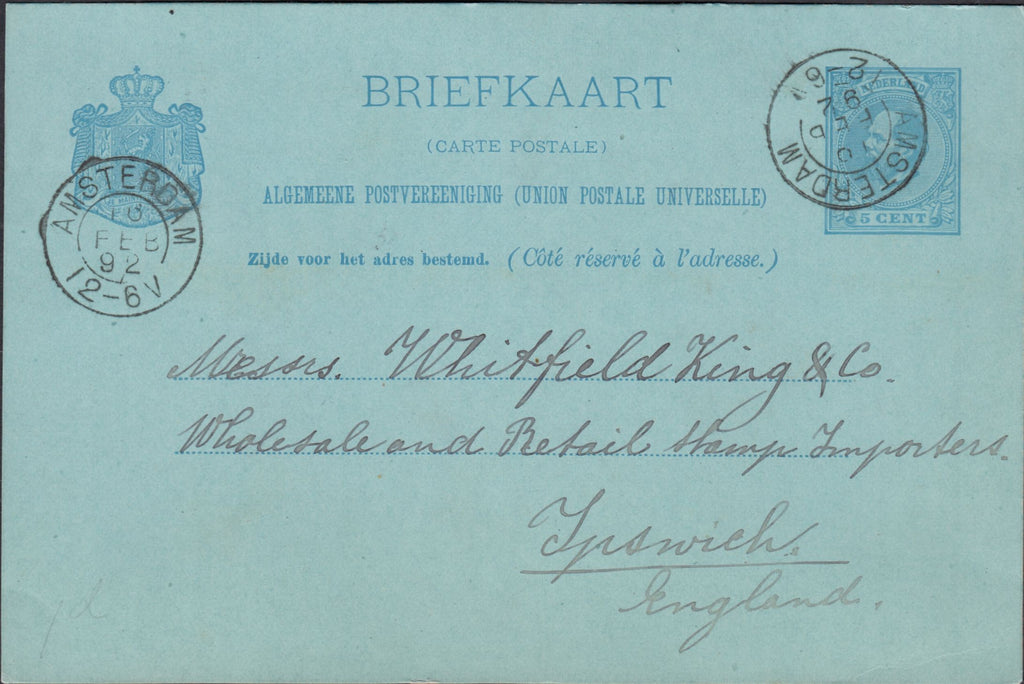 BRIEFKAART
(CARTE POSTALE)
ALGEMEENE POSTVEREENIGING (UNION POSTALE UNIVERSELLE)
Zijde voor het adres bestemd. (Côté réservé à l'adresse.)
NEDERLAND
5 CENT
AMSTERDAM
FEB
92
12-6V
AMSTERDAM
Messrs. Whitfield King & Co.
Wholesale and Retail Stamp Importers.
Ipswich.
England.